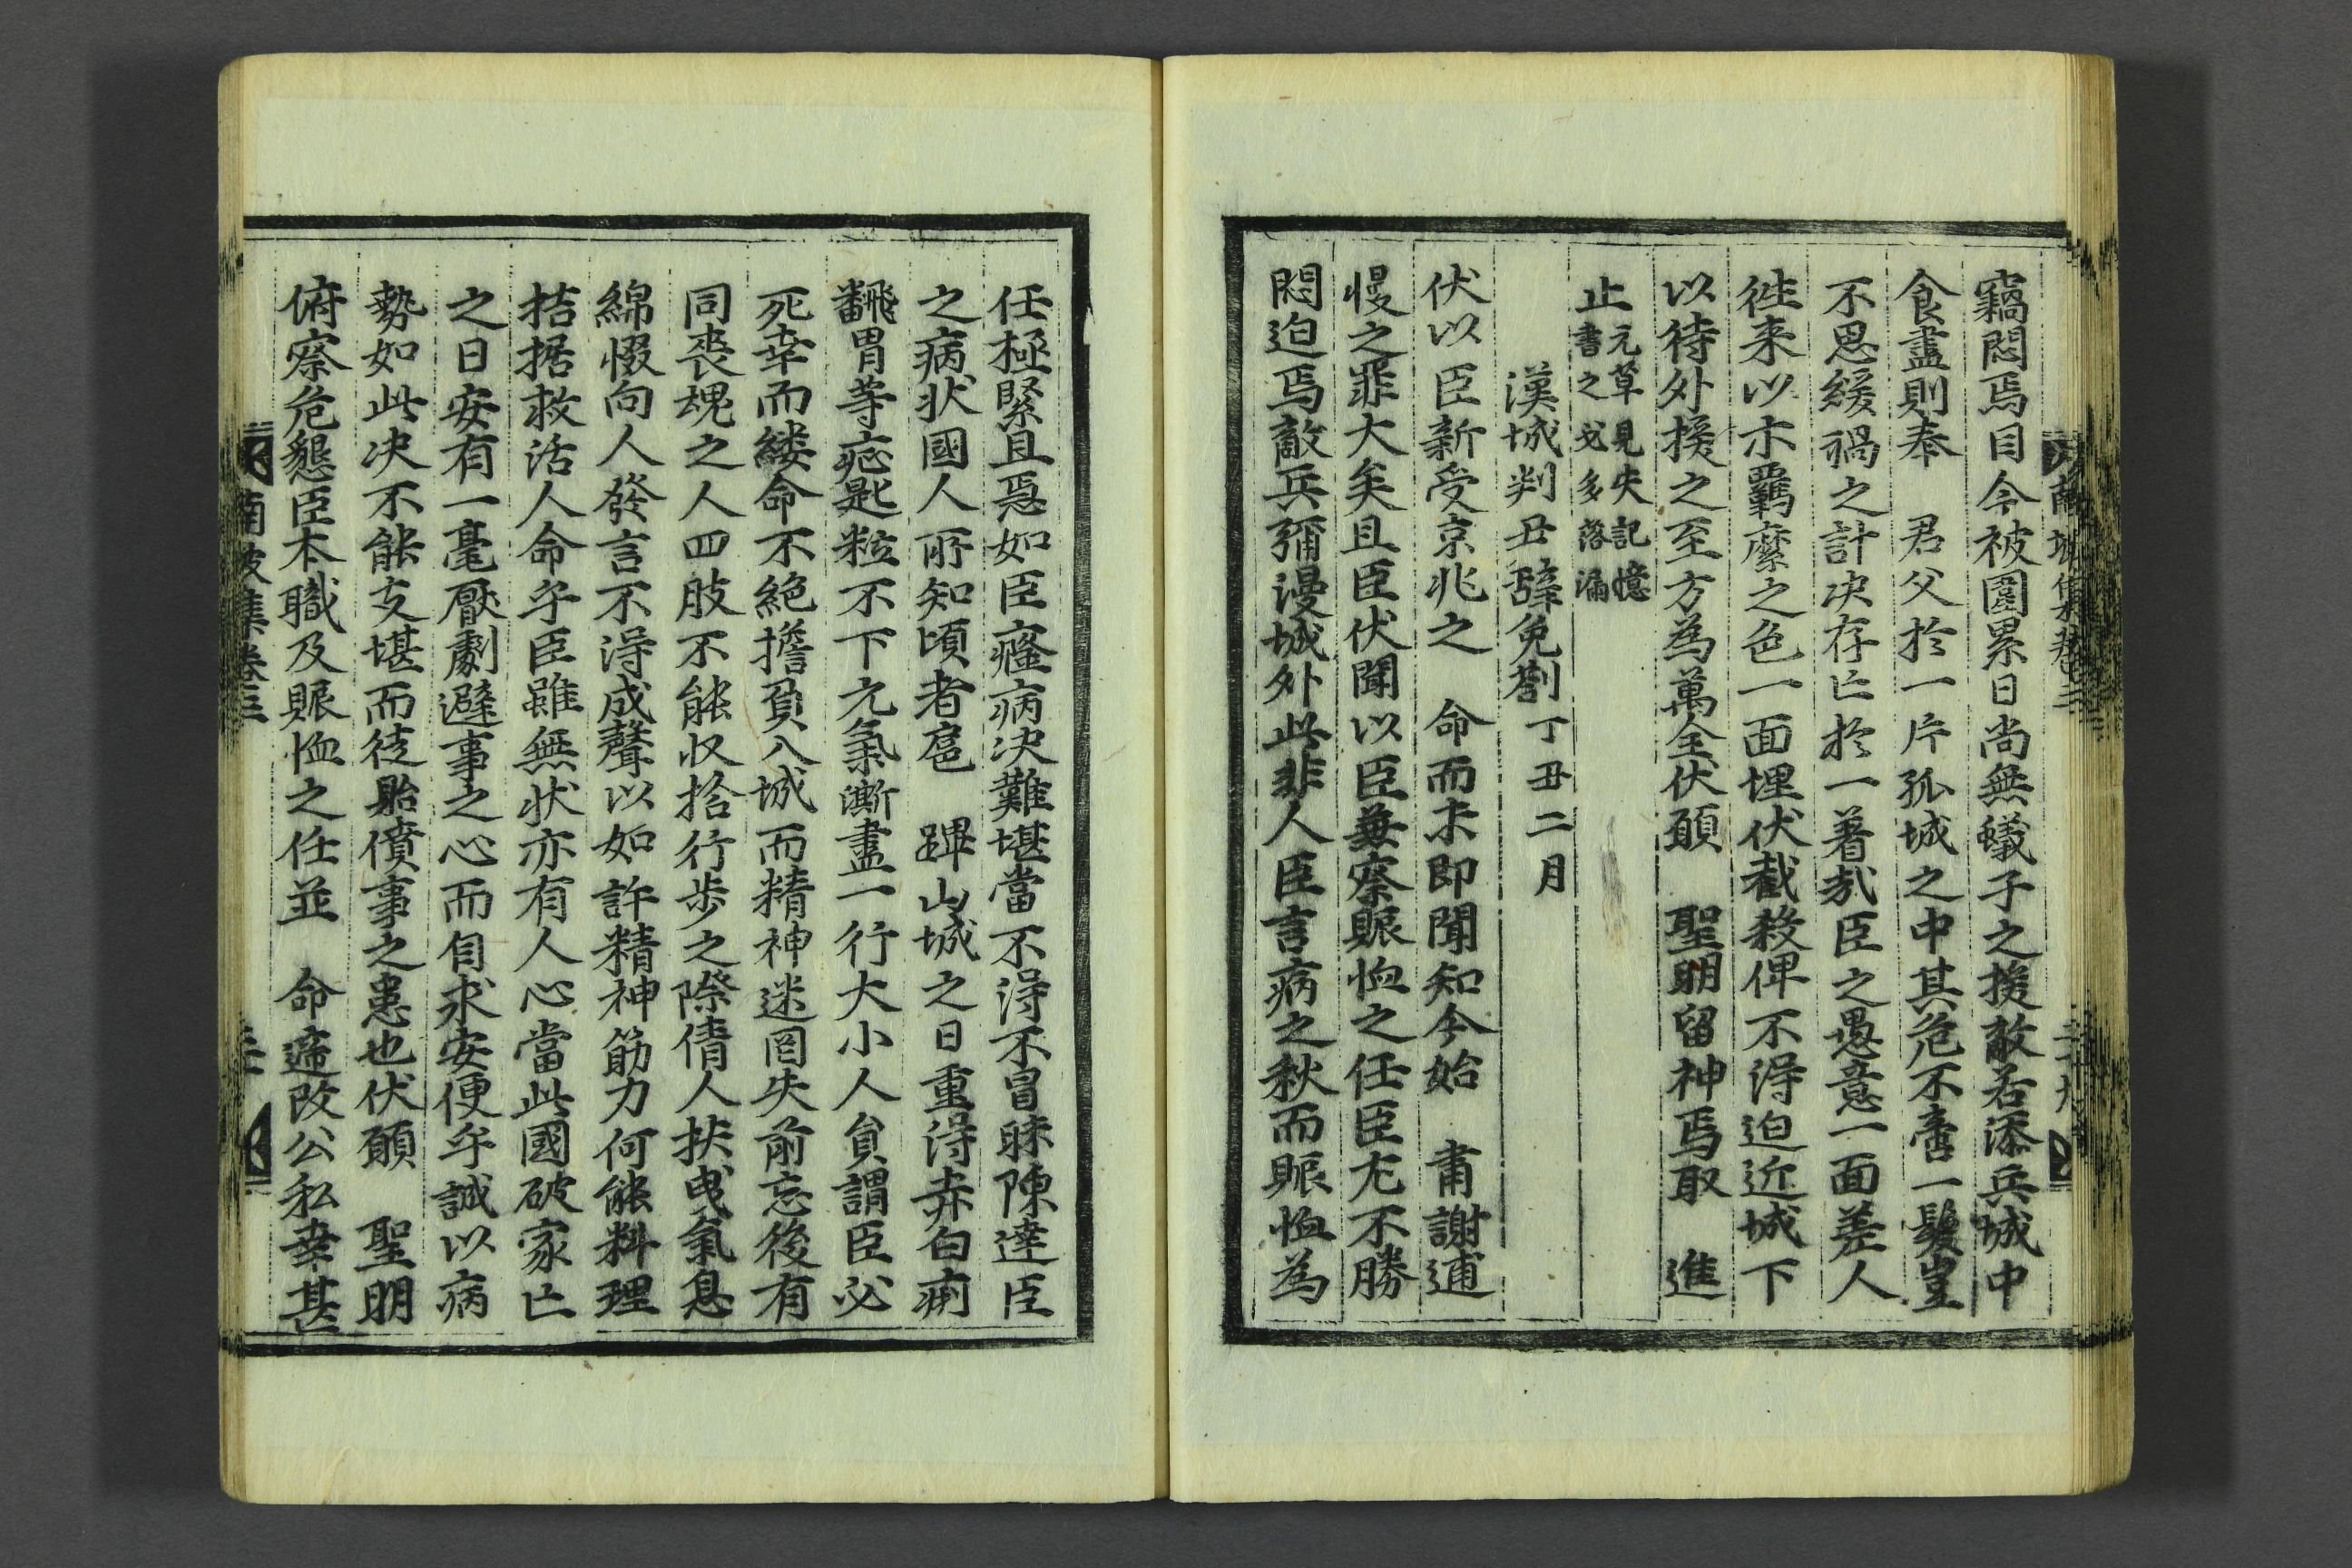 竊悶焉目今被圍累日尚無蟻子之援敵若添兵城中
食盡則奉 君父於一片孤城之中其危不啻一髮豈
不思緩禍之計决存亡於一著㢤臣之愚意一面差人
徃来以示羈縻之色一面埋伏截殺俾不得迫近城下
以待外援之至方為萬全伏願 聖明留神焉取 進
止元草見失記憶
書之文多落漏
漢城判尹辭免劄丁丑二月
伏以臣新受京兆之 命而未即聞知今始 肅謝逋
慢之罪大矣且臣伏聞以臣兼察賑恤之任臣尤不勝
悶迫焉敵兵彌漫城外此非人臣言病之秋而賑恤為
任極緊且急如臣癃病决難堪當不得不冒昧陳達臣
之病状國人所知頃者扈 蹕山城之日重得赤白痢
飜胃等症匙粒不下元氣漸盡一行大小人負謂臣必
死幸而縷命不絶擔負入城而精神迷罔失前忘後有
同喪魂之人四肢不能收拾行步之際倩人扶曳氣息
綿惙向人發言不得成聲以如許精神筋力何能料理
拮据救活人命乎臣雖無状亦有人心當此國破家亡
之日安有一毫厭劇避事之心而自求安便乎誠以病
勢如此决不能支堪而徒貽僨事之患也伏願 聖明
俯察危懇臣本職及賑恤之任並 命遞改公私幸甚